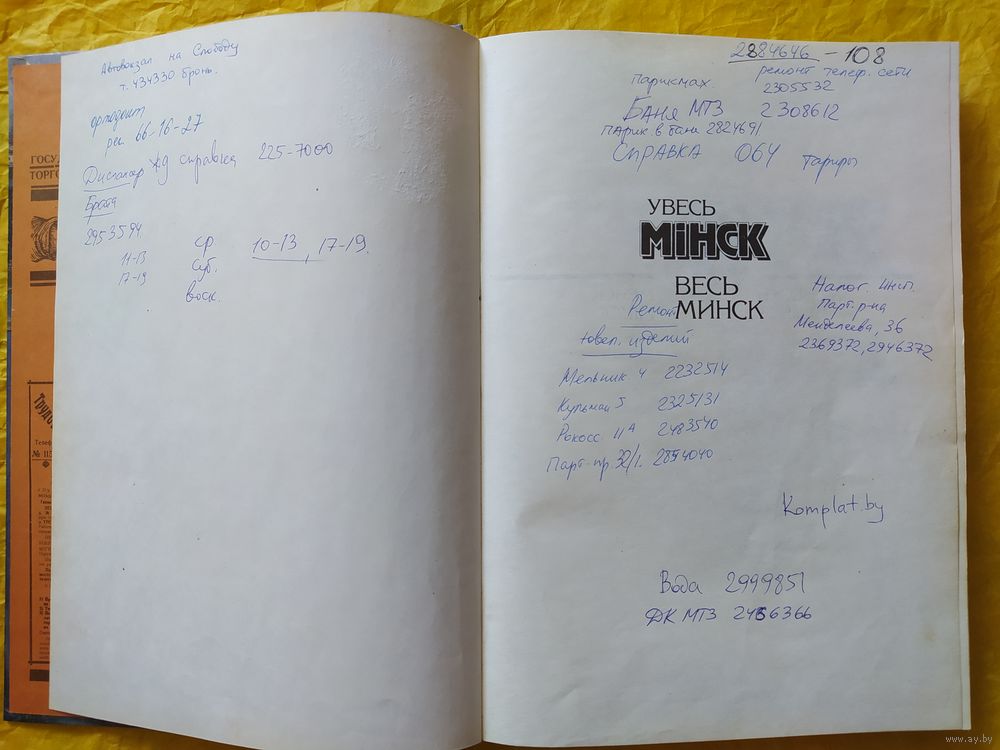 Автовокзал на Слободу
т. 434330 бронь.
ортодонт
рег. 66-16-27
Диспансер жд справка 225-7000
Брата
2953594
11-13 ср 10-13, 17-19.
17-19 суб.
воск.
ГОСУ
ТОРГО
Телеф
2884646 - 108
Парикмах. ремонт телеф. сети
2305532
Баня МТЗ 2308612
Парик в бане 2824691
Справка 064 тарифы
УВЕСЬ
МІНСК
ВЕСЬ
МИНСК
Ремонт
ювел. изделий
Налог. инсп.
Парт. р-на
Менделеева, 36
2369372, 2946372
Мельник 4 2232514
Кульман 5 2325131
Рокосс. 11А 2483540
Парт. пр. 32/1. 2854040
Komplat.by
Вода 2999851
ДК МТЗ 2456366
www.ay.by